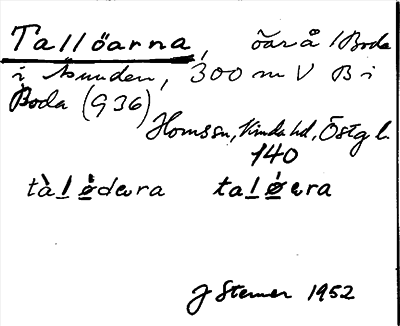 Tallöarna, öar å / Boda
i Sunden, 300 m V B i
Boda (936)
Hornssn, Kinda hd, Östgl.
140
tàlødɐra taløɐra
J Sterner 1952